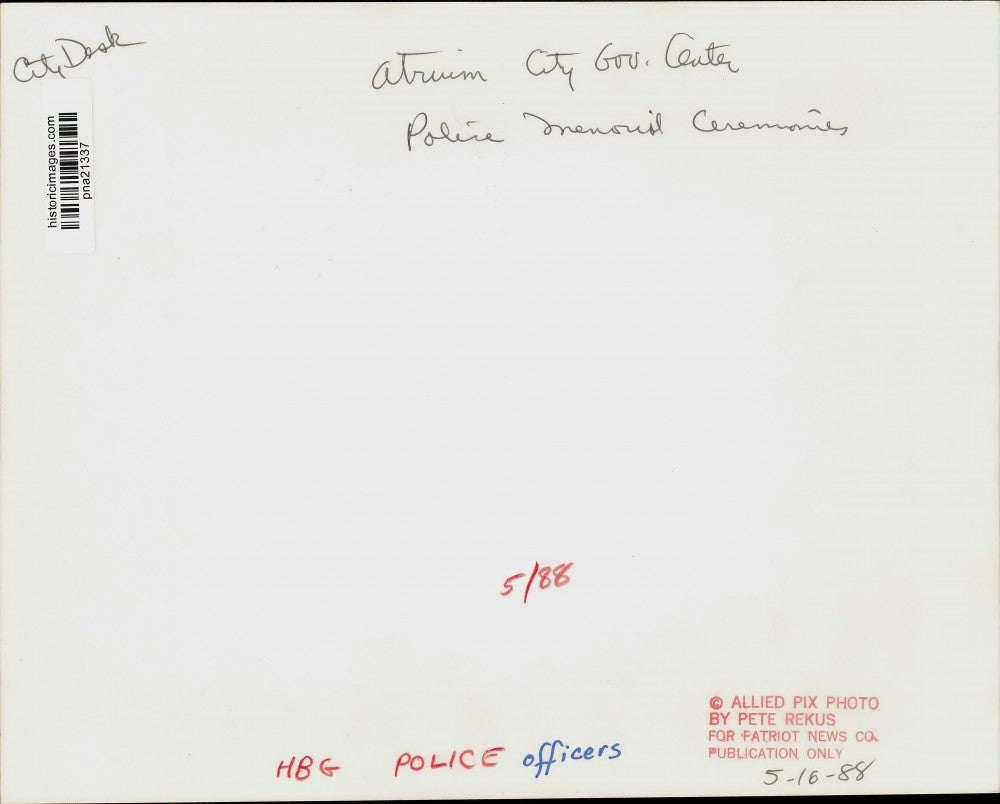 City Desk
Atruim City Gov. Center
Police Memorial Ceremonies
historicimages.com
pna21337
5/88
© ALLIED PIX PHOTO
BY PETE REKUS
FOR PATRIOT NEWS CO.
PUBLICATION ONLY
5-16-88
HBG POLICE officers